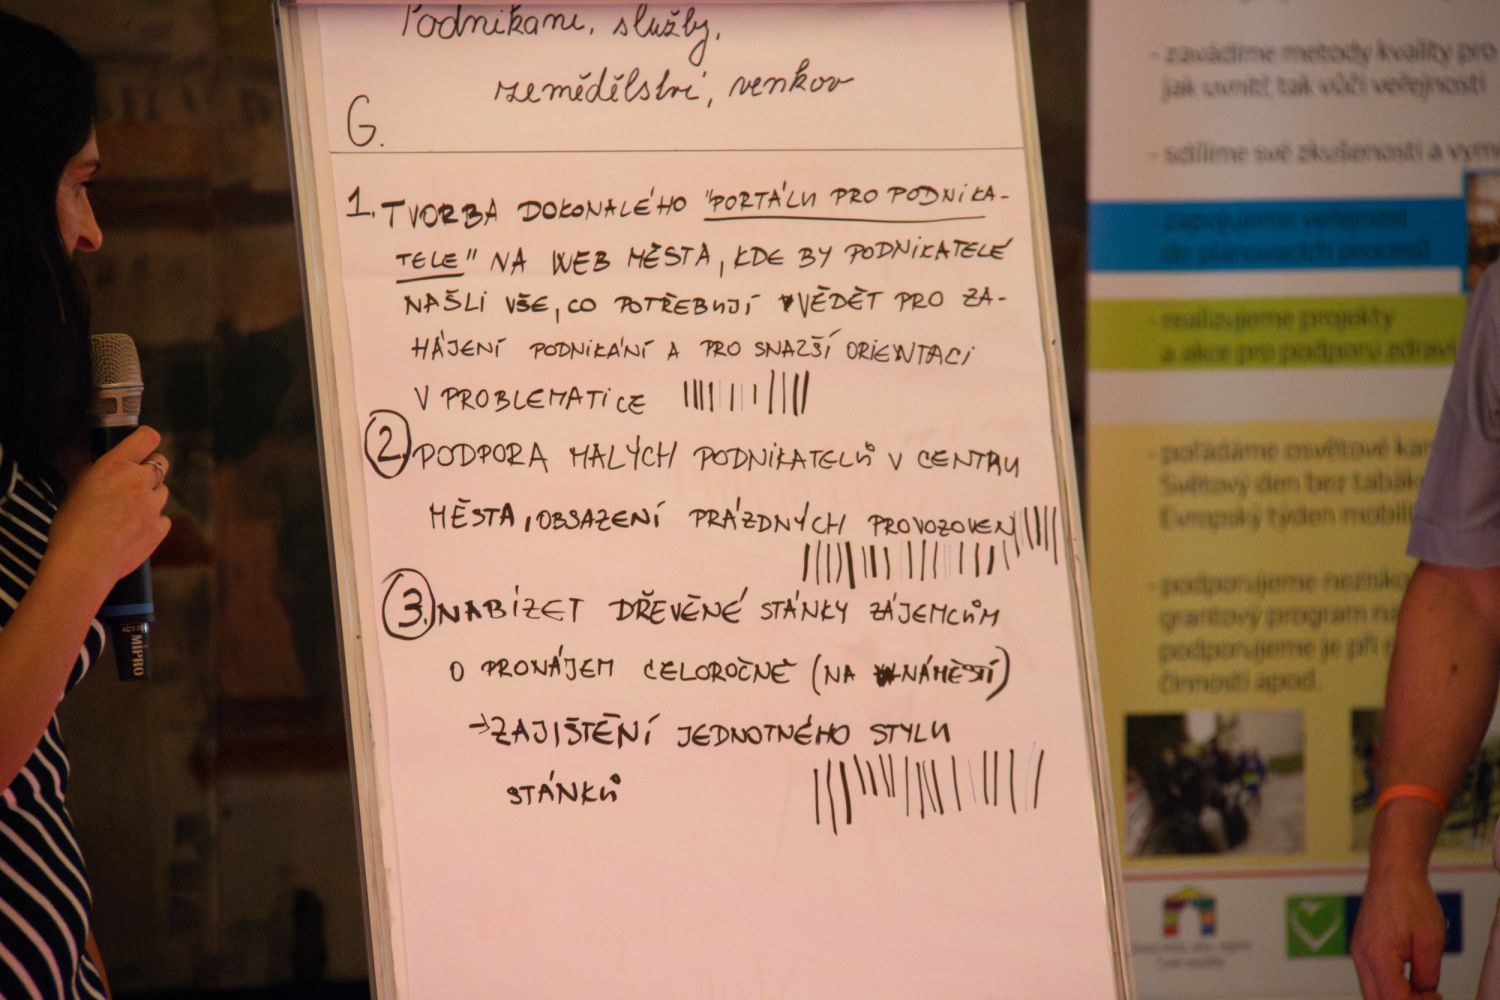 Podnikání, služby,
zemědělství, venkov
G.
1. TVORBA DOKONALÉHO "PORTÁLU PRO PODNIKA-
TELE" NA WEB MĚSTA, KDE BY PODNIKATELÉ
NAŠLI VŠE, CO POTŘEBUJÍ VĚDĚT PRO ZA-
HÁJENÍ PODNIKÁNÍ A PRO SNAZŠÍ ORIENTACI
V PROBLEMATICE
2. PODPORA MALÝCH PODNIKATELŮ V CENTRU
MĚSTA, OBSAZENÍ PRÁZDNÝCH PROVOZOVEN
3. NABÍZET DŘEVĚNÉ STÁNKY ZÁJEMCŮM
O PRONÁJEM CELOROČNĚ (NA NÁMĚSTÍ)
→ ZAJIŠTĚNÍ JEDNOTNÉHO STYLU
STÁNKŮ
MIPRO
- zavádíme metody kvality pro
jak uvnitř, tak vůči veřejnosti
- sdílíme své zkušenosti a
zapojujeme veřejnost
do plánovacích procesů
- realizujeme projekty
a akce pro podporu zdraví
- pořádáme osvětové
Světový den bez
Evropský týden
- podporujeme
grantový program
podporujeme je při
činnosti apod.